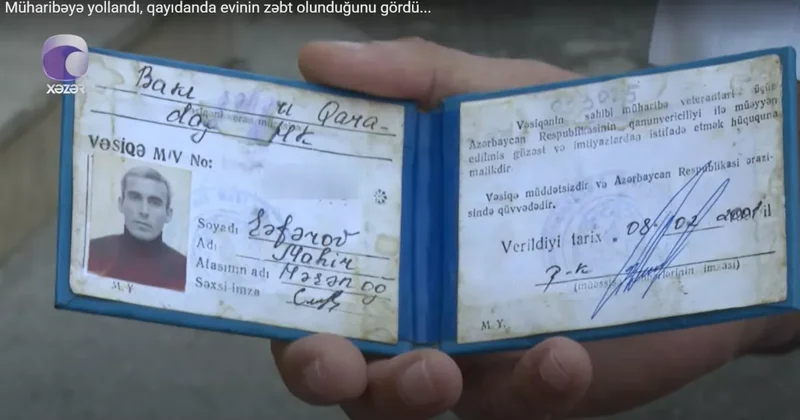 Müharibəyə yollandı, qayıdanda evinin zəbt olunduğunu gördü...
XƏZƏR
Bakı şəhəri Qara-
dağ HK
VƏSİQƏ M/V No:
Soyadı Səfərov
Adı Mahir
Atasının adı Həsən oğ
Şəxsi-imza
M. Y.
Vəsiqənin sahibi müharibə veteranları üçün
Azərbaycan Respublikasının qanunvericiliyi ilə müəyyən
edilmiş güzəşt və imtiyazlardan istifadə etmək hüququna
malikdir.
Vəsiqə müddətsizdir və Azərbaycan Respublikası ərazi-
sində qüvvədədir.
Verildiyi tarix 08. 02 2001 il
(müəssisə rəhbərinin imzası)
M. Y.